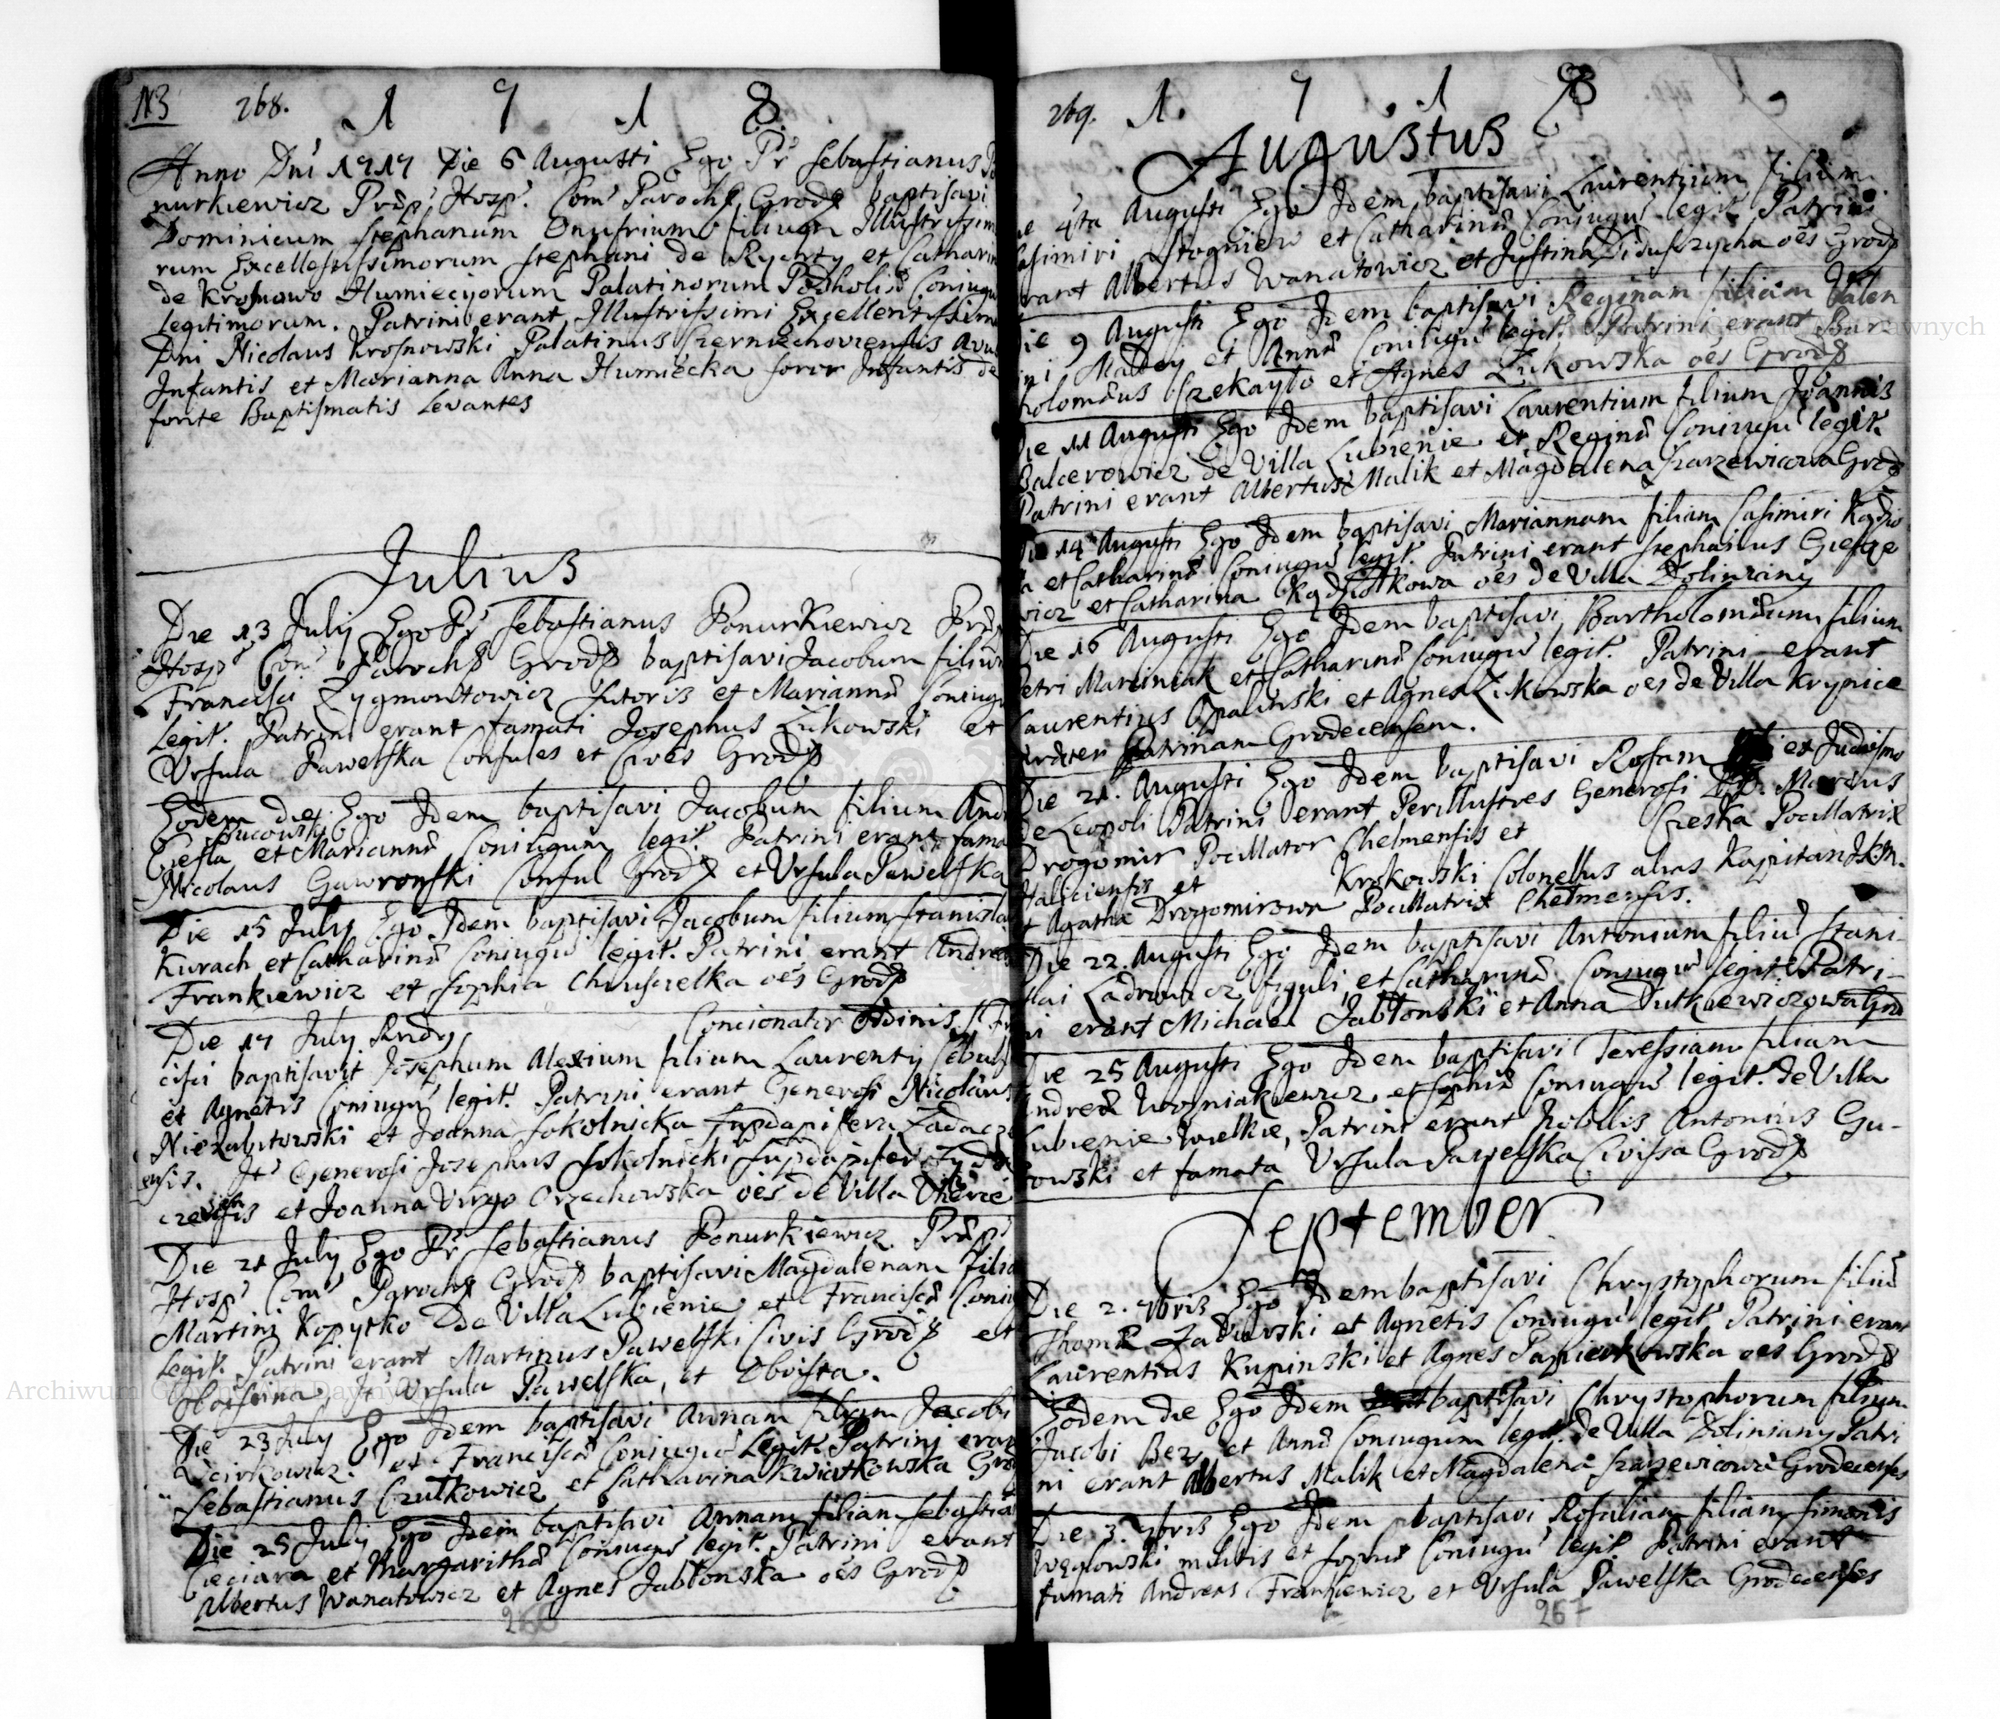 113 268. 1 7 1 8
Anno Dni 1717 Die 6 Augusti Ego Pr Sebastianus Po
nurkiewicz Prp. Hosp. Com Paroch Grod baptisavi
Dominicum Stephanum Onufrium filium Illustrissimo
rum Excellentissimorum Stephani de Rychty et Catharin
de Krosnowo Humieciyorum Palatinorum Podholi Coniugu
Legitimorum. Patrini erant Illustrissimi Excellentissimi
Dni Nicolaus Krosnowski Palatinus Czerniechoviensis Avu
Infantis et Marianna Anna Humiecka soror Infantis de
fonte Baptismatis Levantes
Julius
Die 13 July Ego Pr Sebastianus Ponurkiewicz Prp
Hosp Com Paroch Grod baptisavi Jacobum filium
Francisci Zygmontowicz Sutoris et Mariann Coniugu
Legit. Patrini erant famati Josephus Zukowski et
Ursula Pawelska Consules et Cives Grod
Eodem die Ego Idem baptisavi Jacobum filium And
Bucowsky
Ciesla et Mariann Coniugum legit. Patrini erant fama
Nicolaus Gawronski Consul Grod et Ursula Pawelska
Die 15 July Ego Idem baptisavi Jacobum filium Stanisla
Kurach et Catharin Coniugu legit. Patrini erant Andrea
Frankiewicz et Sophia Chruscielka oes Grod
Die 17 July Rndg Concionator Ordinis S. Fr
cisci baptisavit Josephum Alexium filium Laurenty Cebuls
et Agnetis Coniugu legit. Patrini erant Generosi Nicolaus
Niezabitowski et Joanna Sokolnicka
ensis. It Generosi Josephus Sokolnicki
et Joanna Virgo Orzechowska oes de Villa
Die 21 July Ego Pr Sebastianus Ponurkiewicz Prp
Hosp Com Paroch Grod baptisavi Magdalenam filia
Martini Kopytko De Villa Lubienie et Francisc Coniu
legit. Patrini erant Martinus Pawelski Civis Grod et
It Ursula Pawelska, et
Die 23 July Ego Idem baptisavi Annam filiam Jacobi
et Francisc Coniugu Legit. Patrini eran
Sebastianus Czulkowicz et Catharina Kwiatkowska Gro
Die 25 July Ego Idem baptisavi Annam filiam Sebastia
Cieciara et Margarith Coniugu legit. Patrini erant
Albertus Wanatowicz et Agnes Jablonska oes Grod
269. 1 7 1 8
Augustus
ie 4ta Augusti Ego Idem baptisavi Laurentium filium
asimiri Stogniew et Catharin Coniugu legit Patrini
erant Albertus Wanatowicz et Justina Diduszycha oes Grod
ie 9 Augusti Ego Idem baptisavi Reginam filiam Valen
ini Madey et Ann Coniugu legit. Patrini erant Bar
tholomeus Szekaylo et Agnes Zukowska oes Grod
Die 11 Augusti Ego Idem baptisavi Laurentium filium Joannis
Balcerowicz de Villa Lubienie et Regin Coniugu legit.
Patrini erant Albertus Malik et Magdalena Szarzewicowa Grod
Die 14 Augusti Ego Idem baptisavi Mariannam filiam Casimiri Kadio
a et Catharin Coniugu legit. Patrini erant Stephanus Gierge
wicz et Catharina Kadziolkowa oes de Villa Doliniany
Die 16 Augusti Ego Idem baptisavi Bartholomeum filium
Petri Marciniak et Catharin Coniugu legit. Patrini erant
Laurentius Opalinski et Agnes Zukowska oes de Villa Krynice
praeter Patrinam Grodecensem.
Die 21. Augusti Ego Idem baptisavi Rosam ex Judaismo
de Leopoli Patrini erant Perillustres Generosi Marcus
Drogomir Pocillator Chelmensis et Czeska Pocillatrix
Haliciensis et Krokowski Colonellus alias Kapitan J.K.M.
et Agatha Drogomirowa Pocillatrix Chelmensis.
Die 22. Augusti Ego Idem baptisavi Antonium filiu Stani-
slai Ladrowicz figuli et Catharin Coniugu legit. Patri-
ni erant Michael Jablonski et Anna Dutkiewiczowa Gro
Die 25 Augusti Ego Idem baptisavi Teressiam filiam
Andreae Wozniakiewicz et Sophi Coniugu legit. de Villa
Lubienie Wielkie, Patrini erant Nobilis Antonius Gu-
rowski et famata Ursula Pawelska Civissa Grod
September
Die 2. 7bris Ego Idem baptisavi Chrystophorum filiu
Thomae Zadurski et Agnetis Coniugu legit. Patrini erant
Laurentius Kupinski et Agnes Papierkowska oes Grod
Eodem die Ego Idem baptisavi Chrystophorum filium
Jacobi Bez et Ann Coniugum legit. de Villa Doliniany Patri
ni erant Albertus Malik et Magdalena Szarzewicowa Grodecenses
Die 3. 7bris Ego Idem baptisavi Rosaliam filiam Simonis
Weglowski militis et Sophi Coniugu legit Patrini erant
famati Andreas Frankiewicz et Ursula Pawelska Grodecenses
267
Archiwum Główne Akt Dawnych